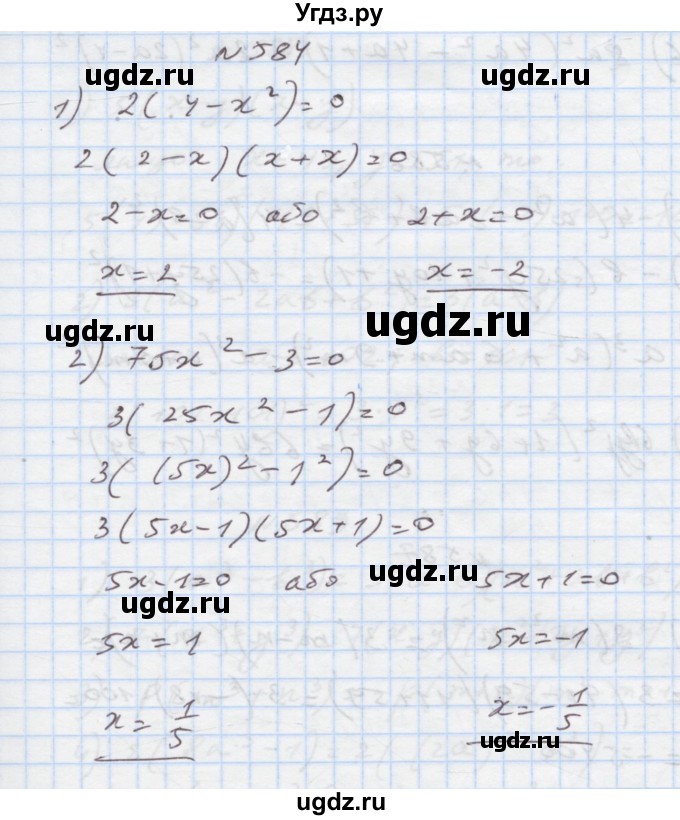 Угдз.ру
№ 584
ugdz.ru ugdz.ru
1) 2(4-x²)=0
2(2-x)(x+x)=0
2-x=0 або 2+x=0
x=2 x=-2
ugdz.ru ugdz.ru
2) 75x²-3=0
3(25x²-1)=0
3((5x)²-1²)=0
3(5x-1)(5x+1)=0
ugdz.ru
5x-1=0 або 5x+1=0
ugdz.ru
5x=1 5x=-1
x=1/5 x=-1/5
ugdz.ru
ugdz.ru